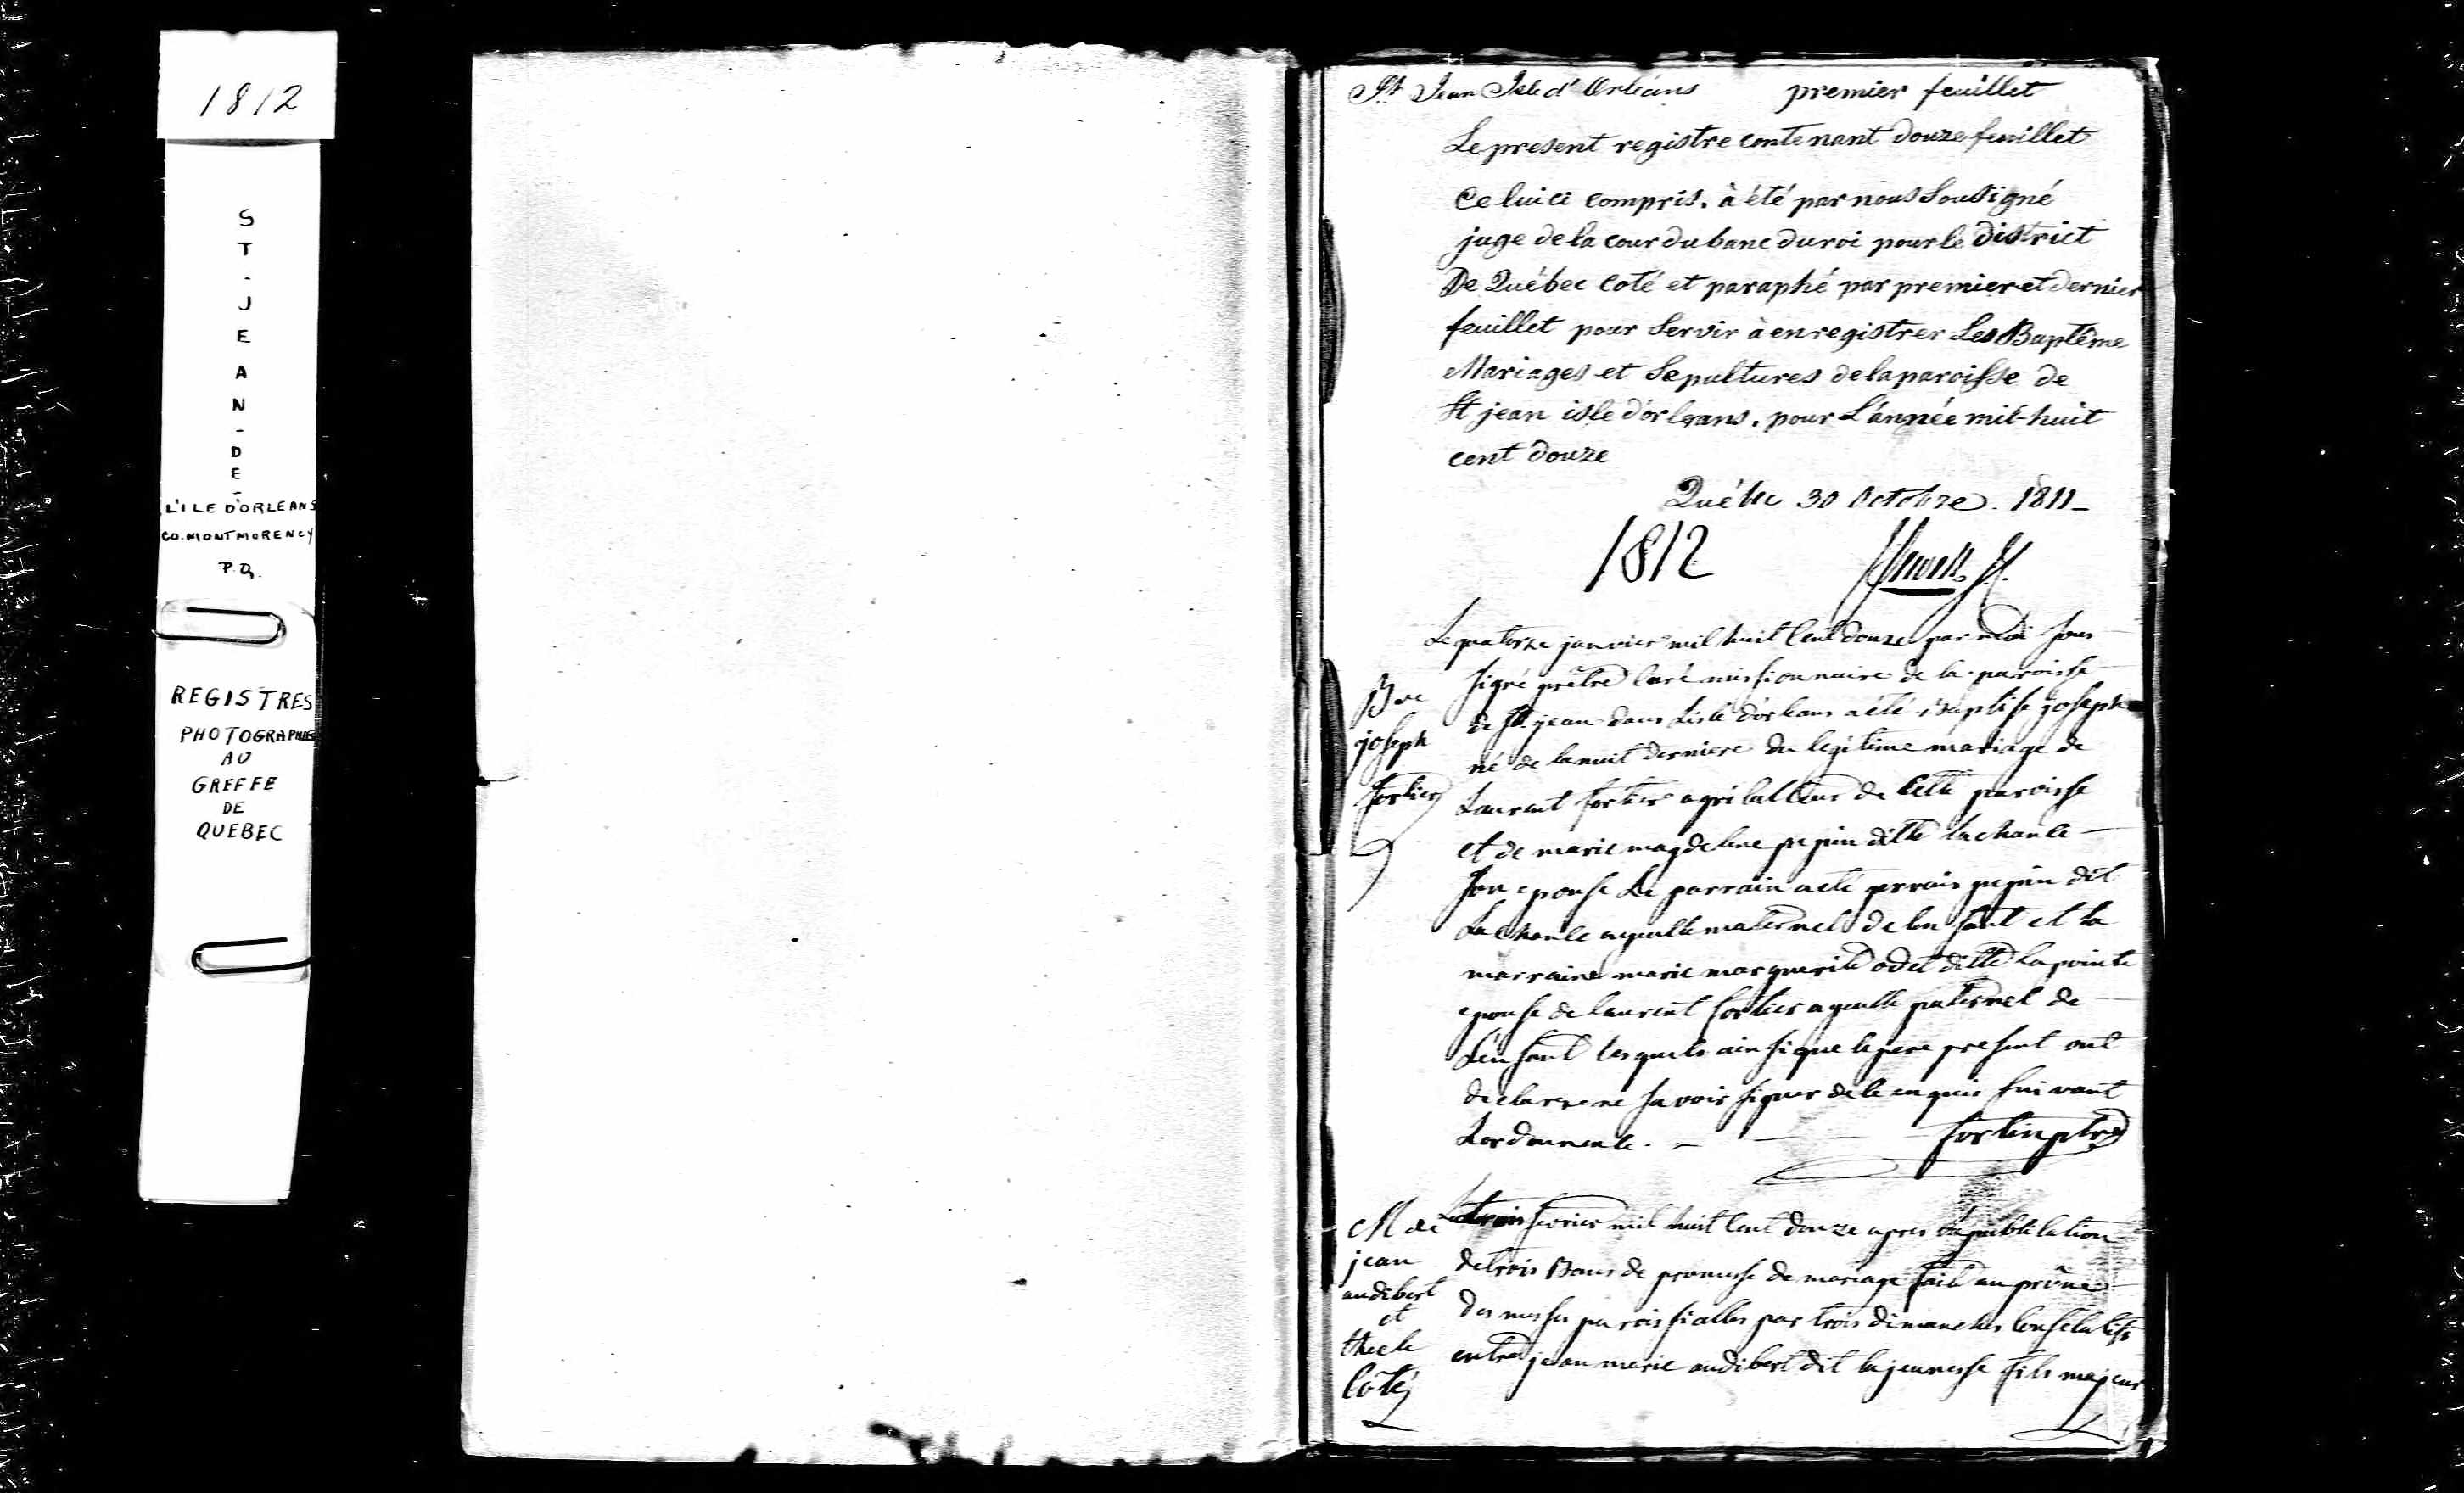 1812
ST-JEAN-DE-
L'ILE D'ORLEANS
CO. MONTMORENCY
P.Q.
REGISTRES
PHOTOGRAPHIES
AU
GREFFE
DE
QUEBEC
St Jean Isle d'Orléans premier feuillet
Le present registre contenant douze feuillet
Celuici compris. à été par nous Sousigné
juge de la cour du banc du roi pour le district
De Québec coté et paraphé par premier et dernier
feuillet pour Servir à enregistrer Les Baptême
Mariages et Sepultures de la paroisse de
St jean isle d'orleans. pour L'année mil-huit
cent douze
Québec 30 Octobre. 1811_
1812
Le quatorze janvier mil huit cent douze par moi sous
signé prêtre curé missionnaire de la paroisse
de St jean dans Lisle d'orleans a été Baptisé joseph
né de la nuit derniere du legitime mariage de
Laurent fortier agriculteur de cette paroisse
et de marie magdelene pepin ditte lachance
son epouse Le parrain a eté gervais pepin dit
La chance ayeulle maternel de lenfant et la
marraine marie marguerite odet ditte lapointe
epouse de laurent fortier ayeulle paternel de
Lenfant lesquels ainsi que le pere present ont
declare ne savoir signer de ce enquis suivant
Lordonnance. - fortin ptre
Bme
joseph
fortier
Le trois fevrier mil huit cent douze apres la publication
de trois Bans de promesse de mariage faite au prône
des messes paroissialles par trois dimanches consecutifs
entre jean marie audibert dit lajeunesse fils majeur
M de
jean
audibert
et
thecle
Côté